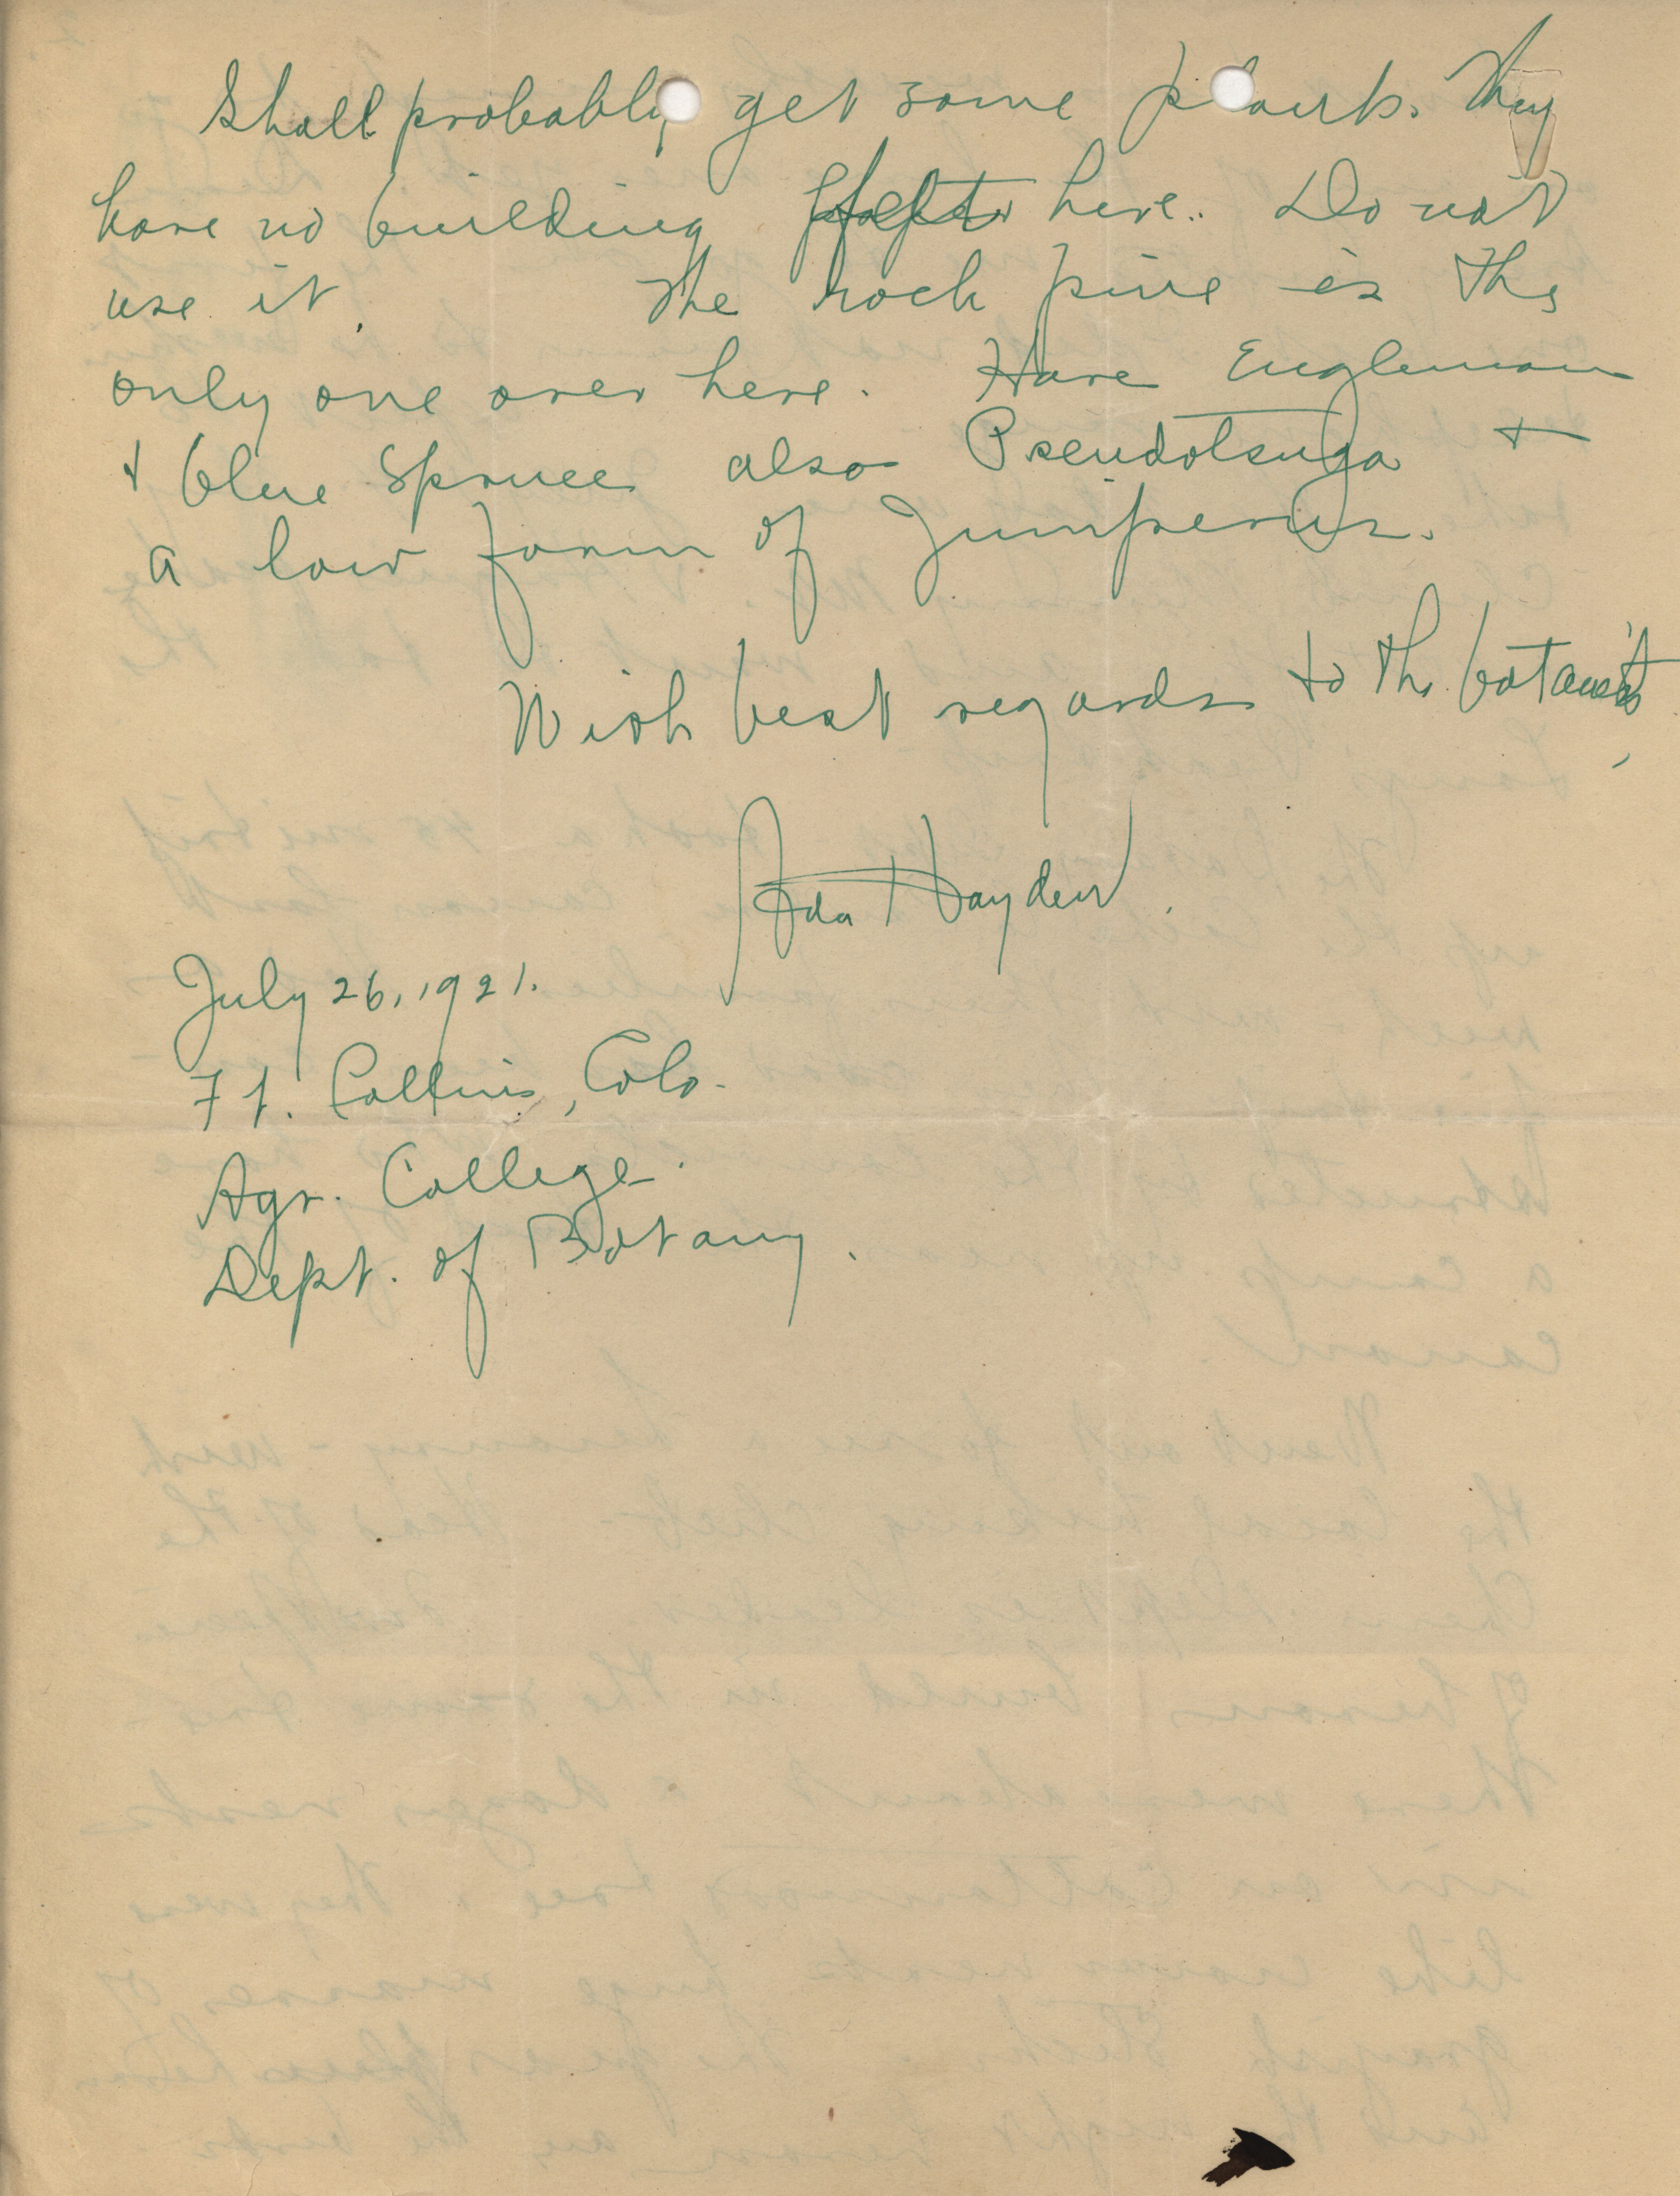 Shall probably get some plants. They
have no building felts here. Do not
use it. The rock pine is the
only one over here. Have Engleman
& blue spruce also Pseudotsuga &
a low form of Juniperus.
With best regards to the botanists,
Ada Hayden.
July 26, 1921.
Ft. Collins, Colo.
Agr. College.
Dept. of Botany.